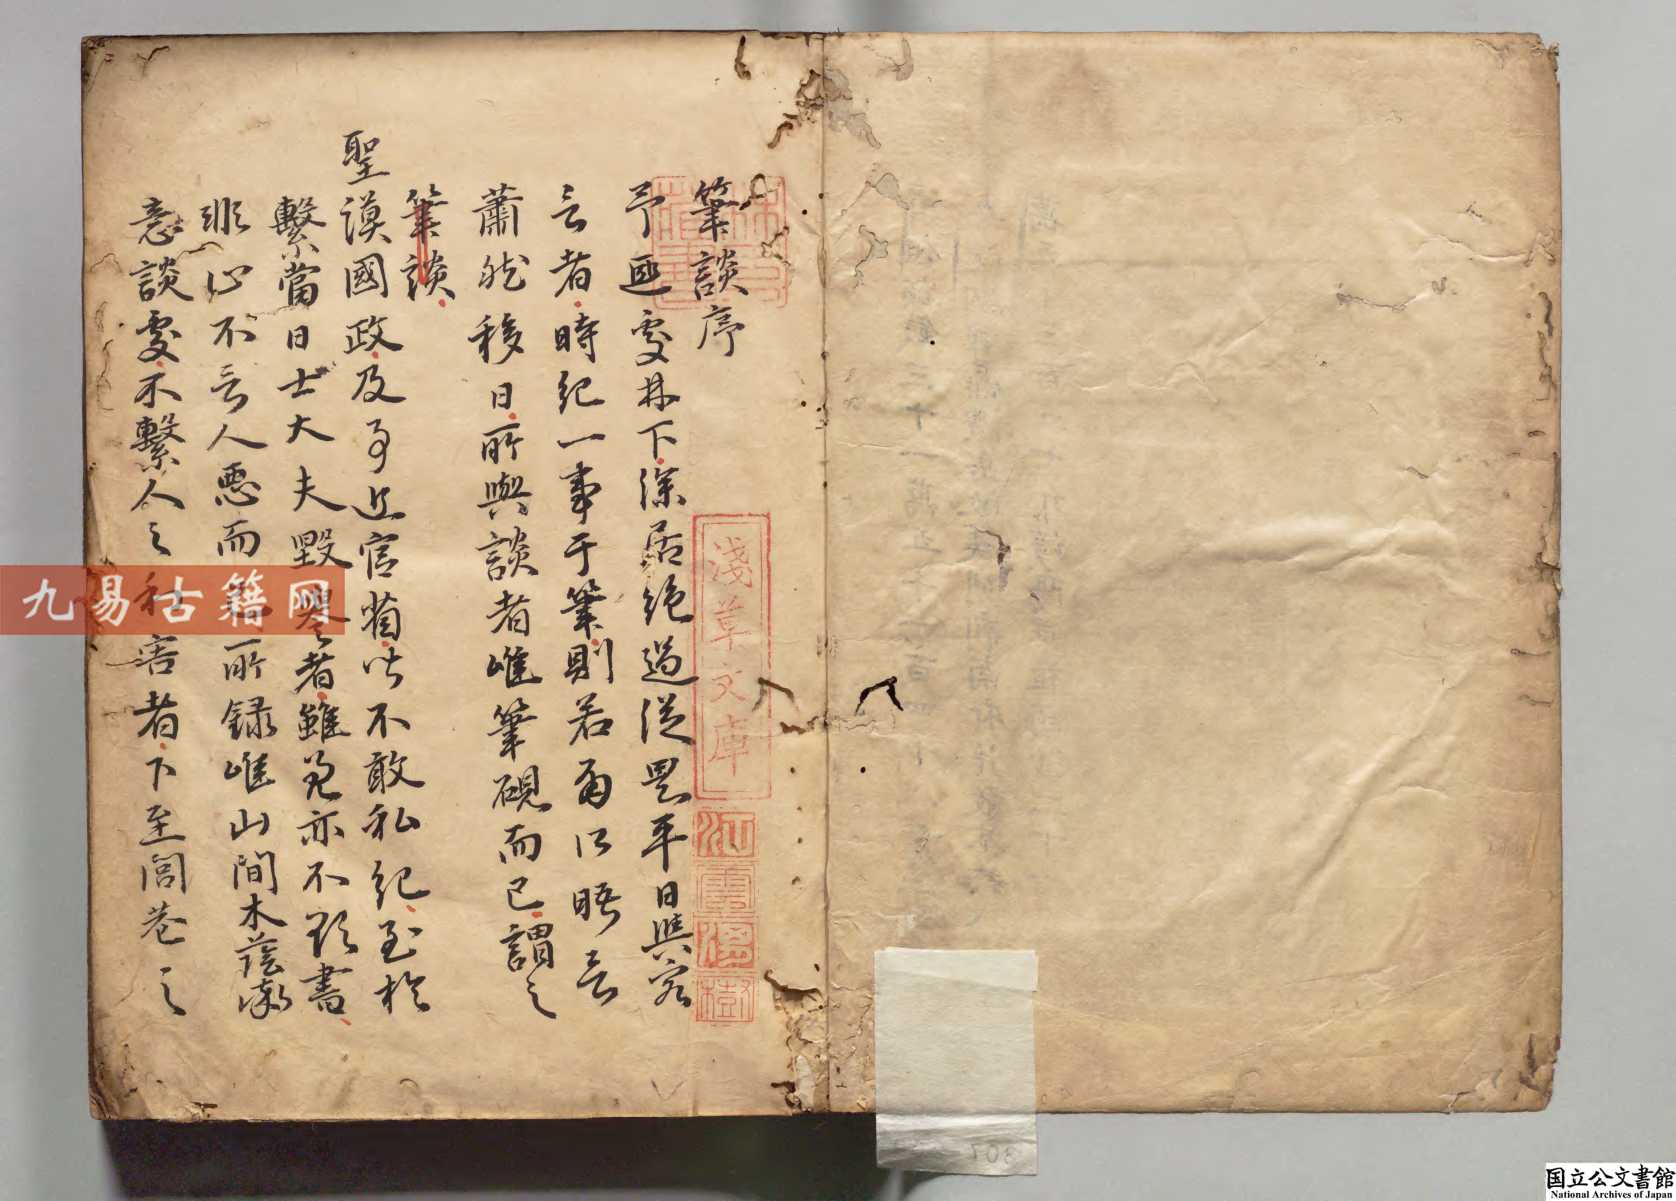 筆談序
予退處林下深居絶過從思平日與客
言者時紀一事于筆則若有所晤言
蕭然移日所與談者唯筆硯而已謂之
筆談
聖謨國政及事近宮省皆不敢私紀至於
繫當日士大夫毀譽者雖善亦不欲書
非止不言人惡而已所録唯山間木蔭率
意談處不繫人之利害者下至閭巷之
淺草文庫
江雲渭樹
林氏藏書
九易古籍网
307
国立公文書館
National Archives of Japan